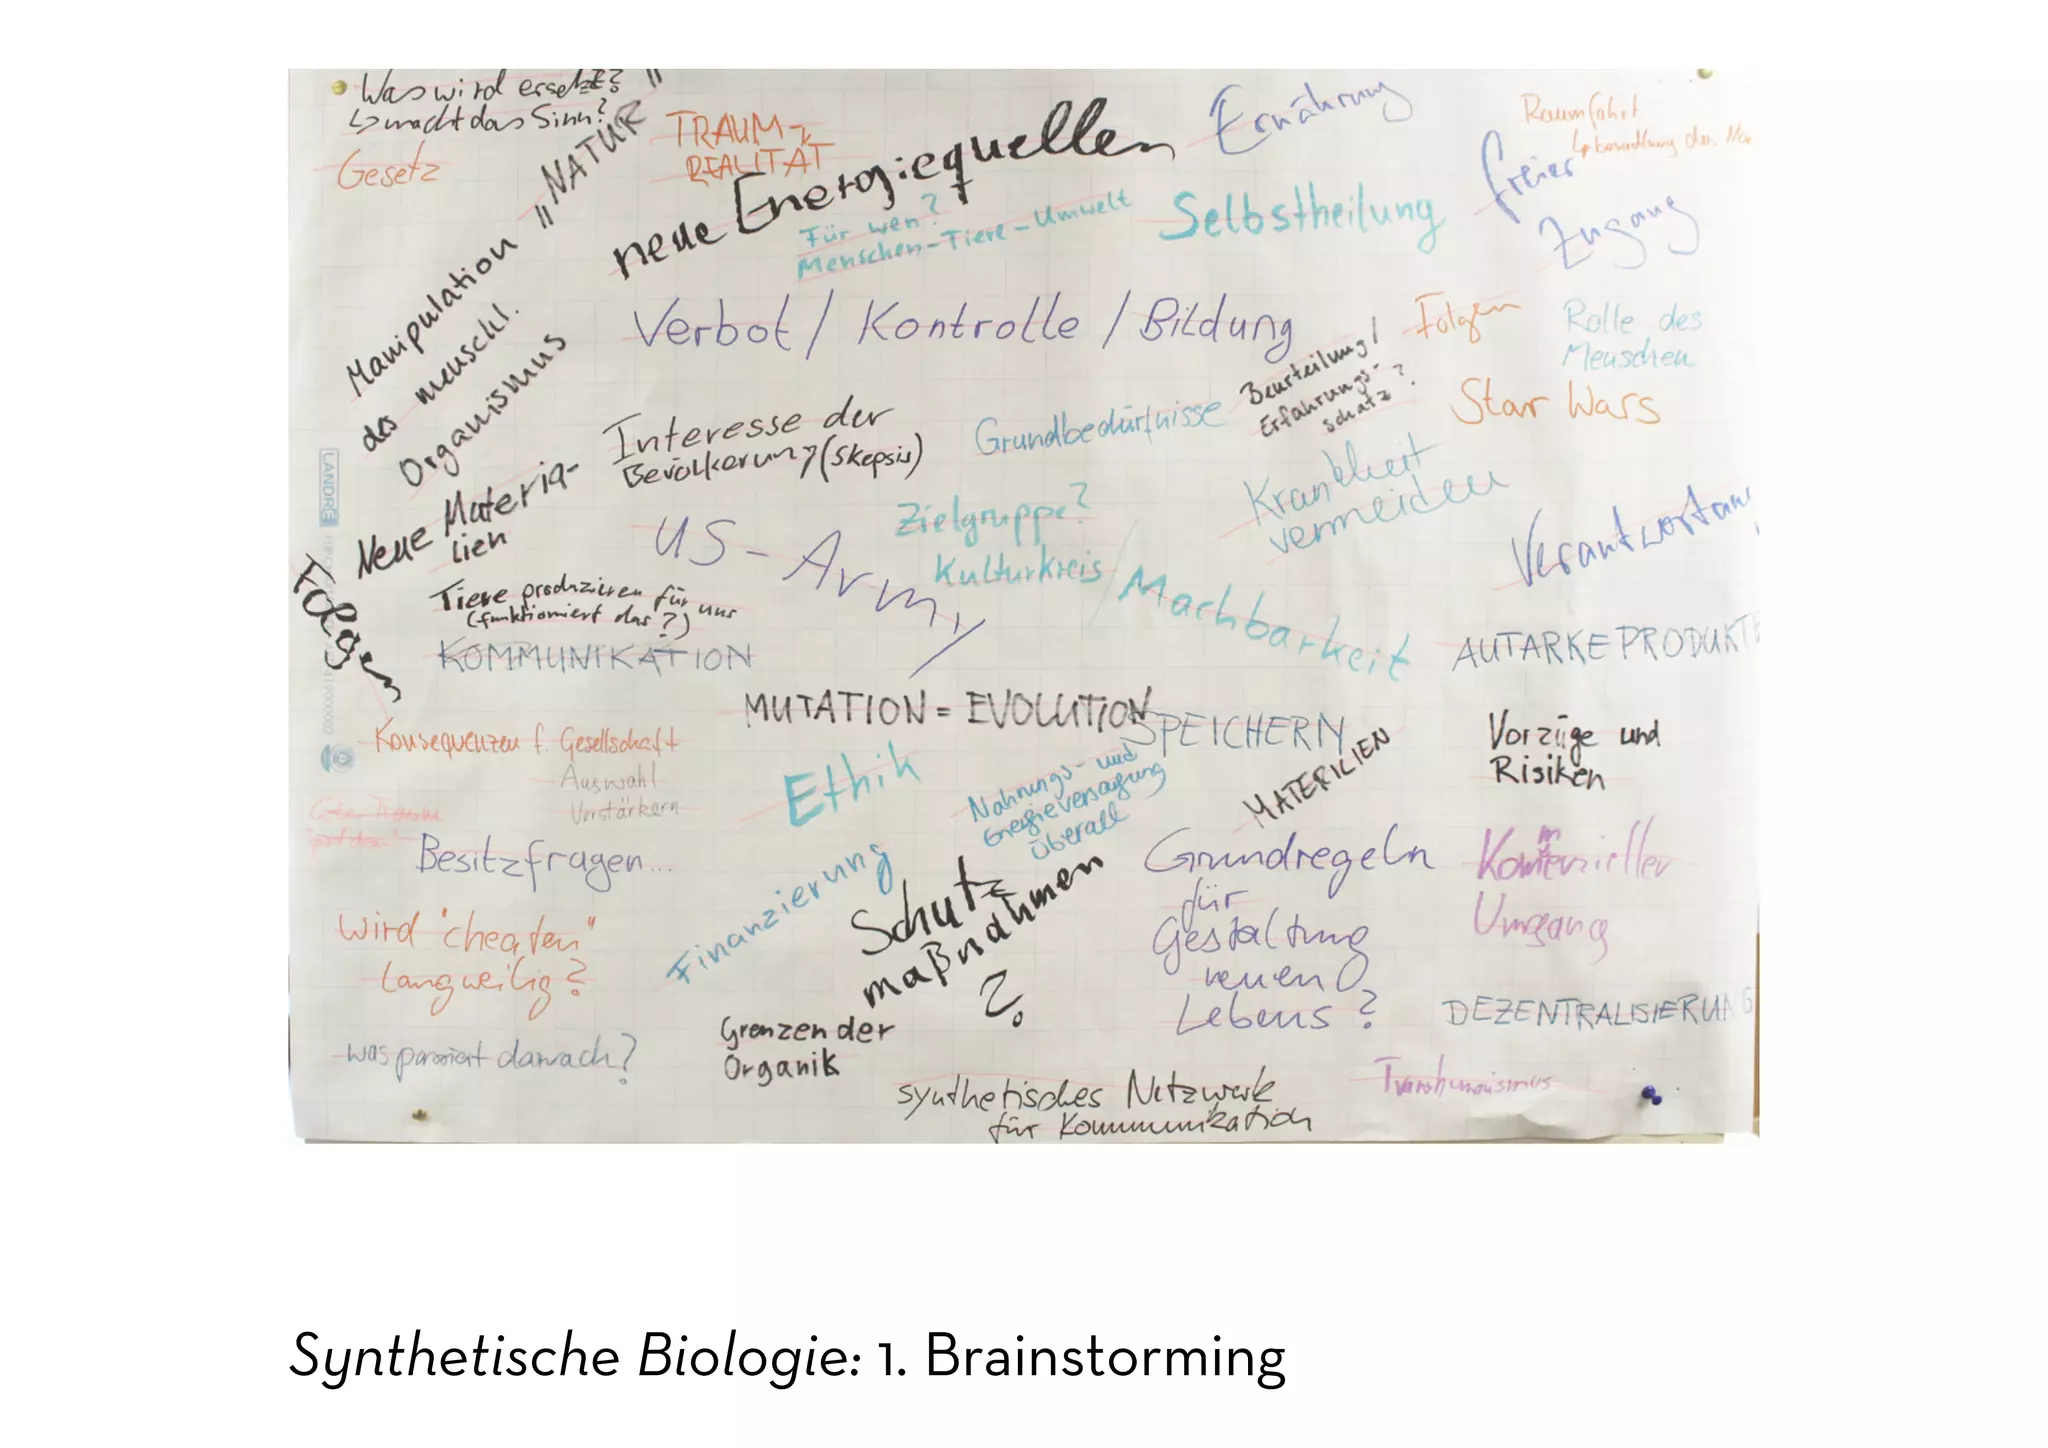 Was wird ersetzt?
↳ macht das Sinn?
Gesetz
Manipulation „NATUR"
des menschl.
Organismus
TRAUM
REALITÄT
neue Energiequellen
Für wen?
Menschen-Tiere-Umwelt
Ernährung
Selbstheilung
Raumfahrt
freier
Zugang
Verbot / Kontrolle / Bildung
Folgen
Rolle des
Menschen
Beurteilung /
Erfahrungs-
schatz?
Star Wars
Interesse der
Bevölkerung (Skepsis)
Grundbedürfnisse
Krankheit
vermeiden
Neue Materia-
lien
LANDRÉ
US-Army
Zielgruppe?
Kulturkreis
Machbarkeit
Verantwortung
Folgen
Tiere produzieren für uns
(funktioniert das?)
KOMMUNIKATION
AUTARKE PRODUKTE
MUTATION = EVOLUTION
SPEICHERN
Vorzüge und
Risiken
Konsequenzen f. Gesellschaft
Auswahl
Verstärkern
Ethik
Nahrungs- und
Energieversorgung
überall
MATERILIEN
Besitzfragen...
Finanzierung
Schutz
maßnahmen
?
Grundregeln
für
Gestaltung
neuen
Lebens?
Kommerzieller
Umgang
wird "cheaten"
langweilig?
was passiert danach?
Grenzen der
Organik
DEZENTRALISIERUNG
synthetisches Netzwerk
für Kommunikation
Transhumanismus
Synthetische Biologie: 1. Brainstorming